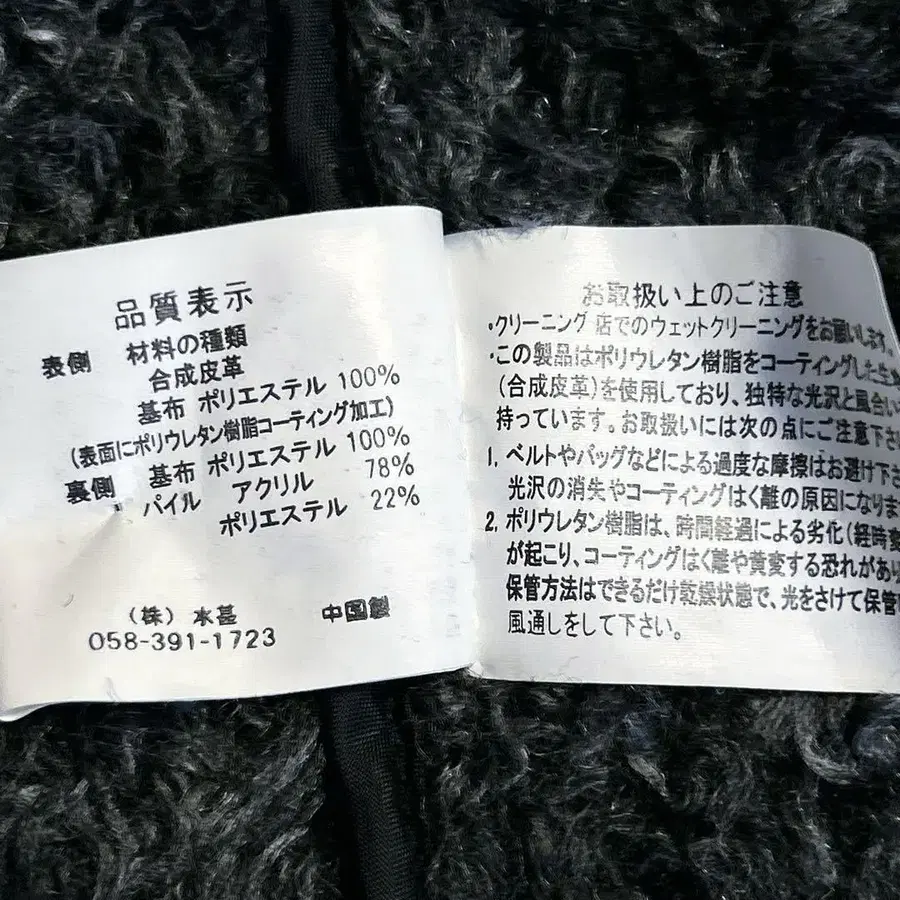 品質表示
表側 材料の種類
合成皮革
基布 ポリエステル 100%
(表面にポリウレタン樹脂コーティング加工)
裏側 基布 ポリエステル 100%
パイル アクリル 78%
ポリエステル 22%
(株) 水甚 中国製
058-391-1723
お取扱い上のご注意
・クリーニング店でのウェットクリーニングをお願いします。
・この製品はポリウレタン樹脂をコーティングした生
(合成皮革)を使用しており、独特な光沢と風合い
持っています。お取扱いには次の点にご注意下さ
1. ベルトやバッグなどによる過度な摩擦はお避け下さ
光沢の消失やコーティングはく離の原因になりま
2. ポリウレタン樹脂は、時間経過による劣化(経時変
が起こり、コーティングはく離や黄変する恐れがあり
保管方法はできるだけ乾燥状態で、光をさけて保管
風通しをして下さい。